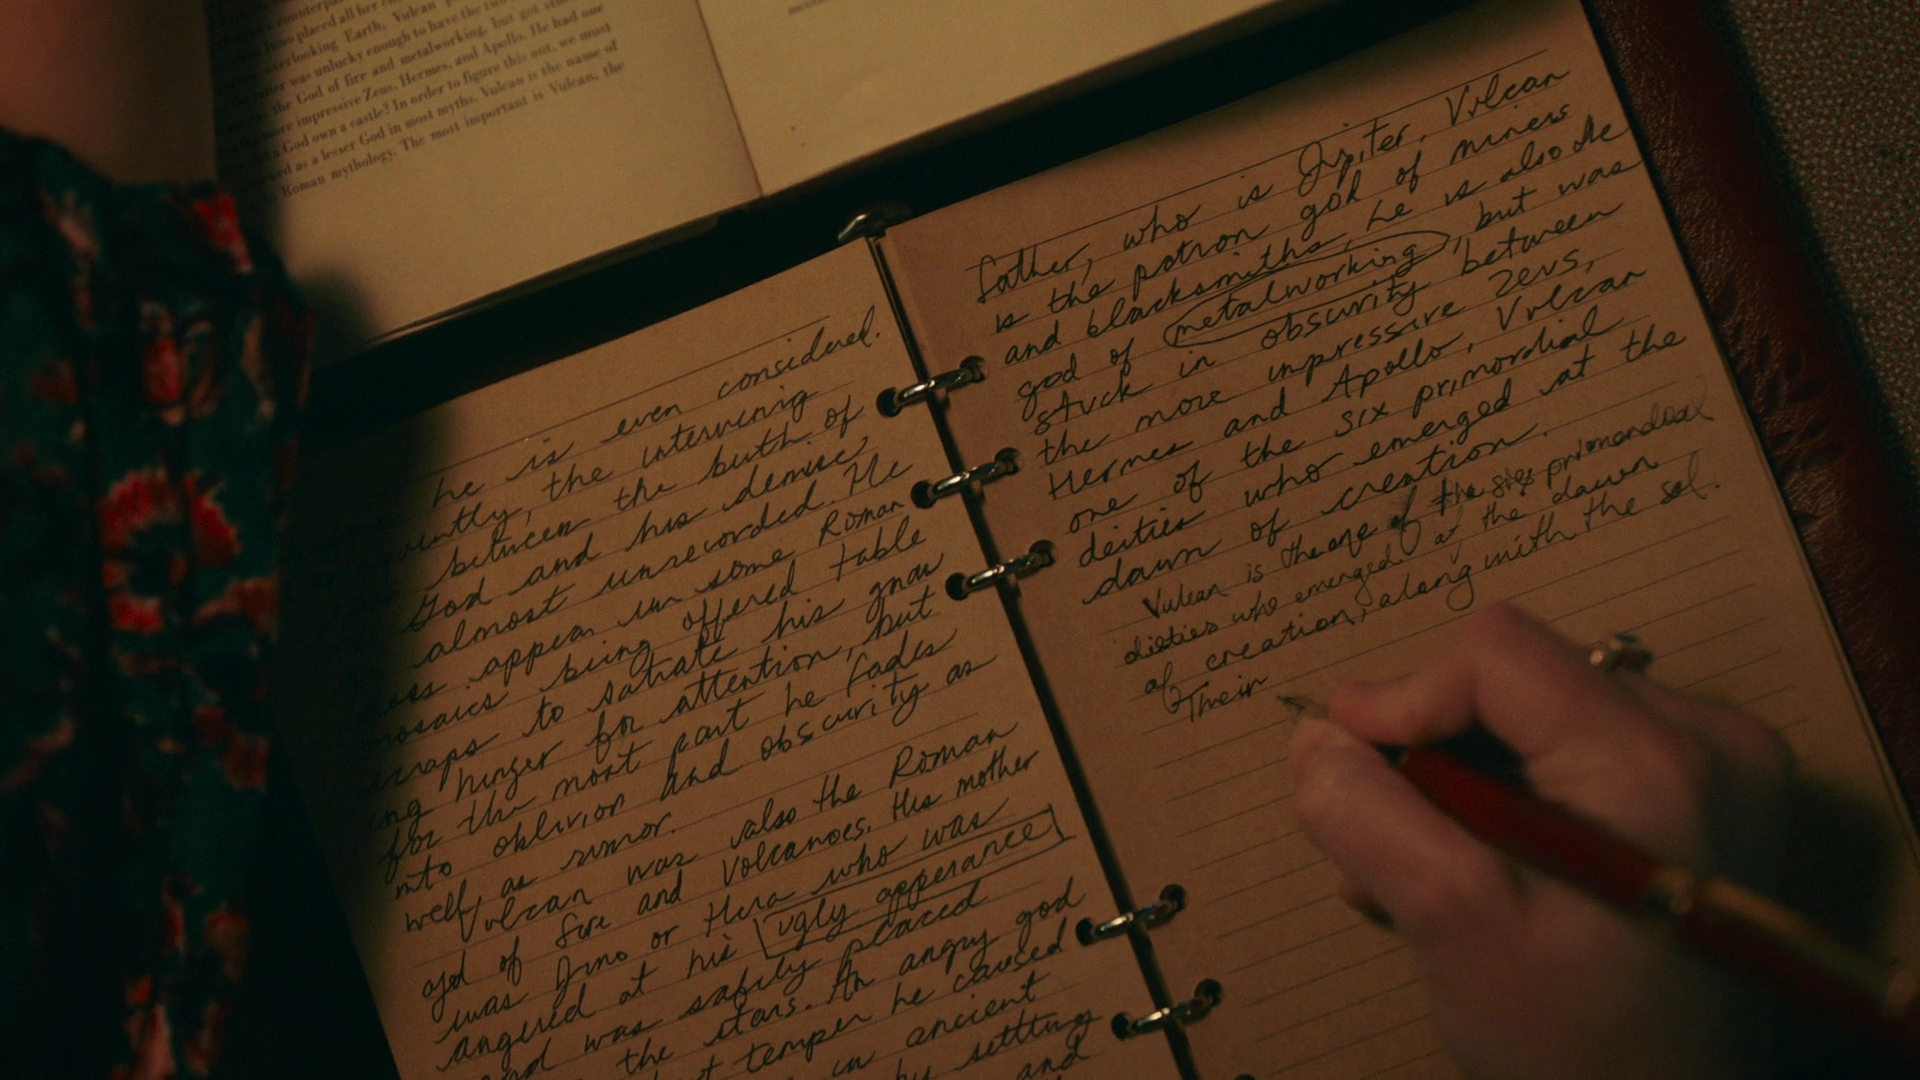 counterpart
Juno placed all her
overlooking Earth, Vulcan
was unlucky enough to have the
the God of fire and metalworking, but got
more impressive Zeus, Hermes, and Apollo. He had one
a God own a castle? In order to figure this out, we must
as a lesser God in most myths. Vulcan is the name of
Roman mythology. The most important is Vulcan, the
he is even considered.
the intervening
between the birth of
God and his demise,
almost unrecorded. He
appears in some Roman
mosaics being offered table
scraps to satiate his gnaw
ing hunger for attention, but
for the most part he fades
into oblivion and obscurity as
well as rumor.
Vulcan was also the Roman
god of fire and volcanoes. His mother
was Juno or Hera who was
angered at his ugly apperance
and was safely placed
the stars. An angry god
temper he caused
in ancient
by settling
and
father, who is Jupiter. Vulcan
is the patron god of miners
and blacksmiths, he is also the
god of metalworking, but was
stuck in obscurity between
the more impressive Zeus,
Hermes and Apollo, Vulcan
one of the six primordial
deities who emerged at the
dawn of creation.
Vulcan is the one of the six
dieties who emerged at the dawn
of creation, along with the sol.
Their